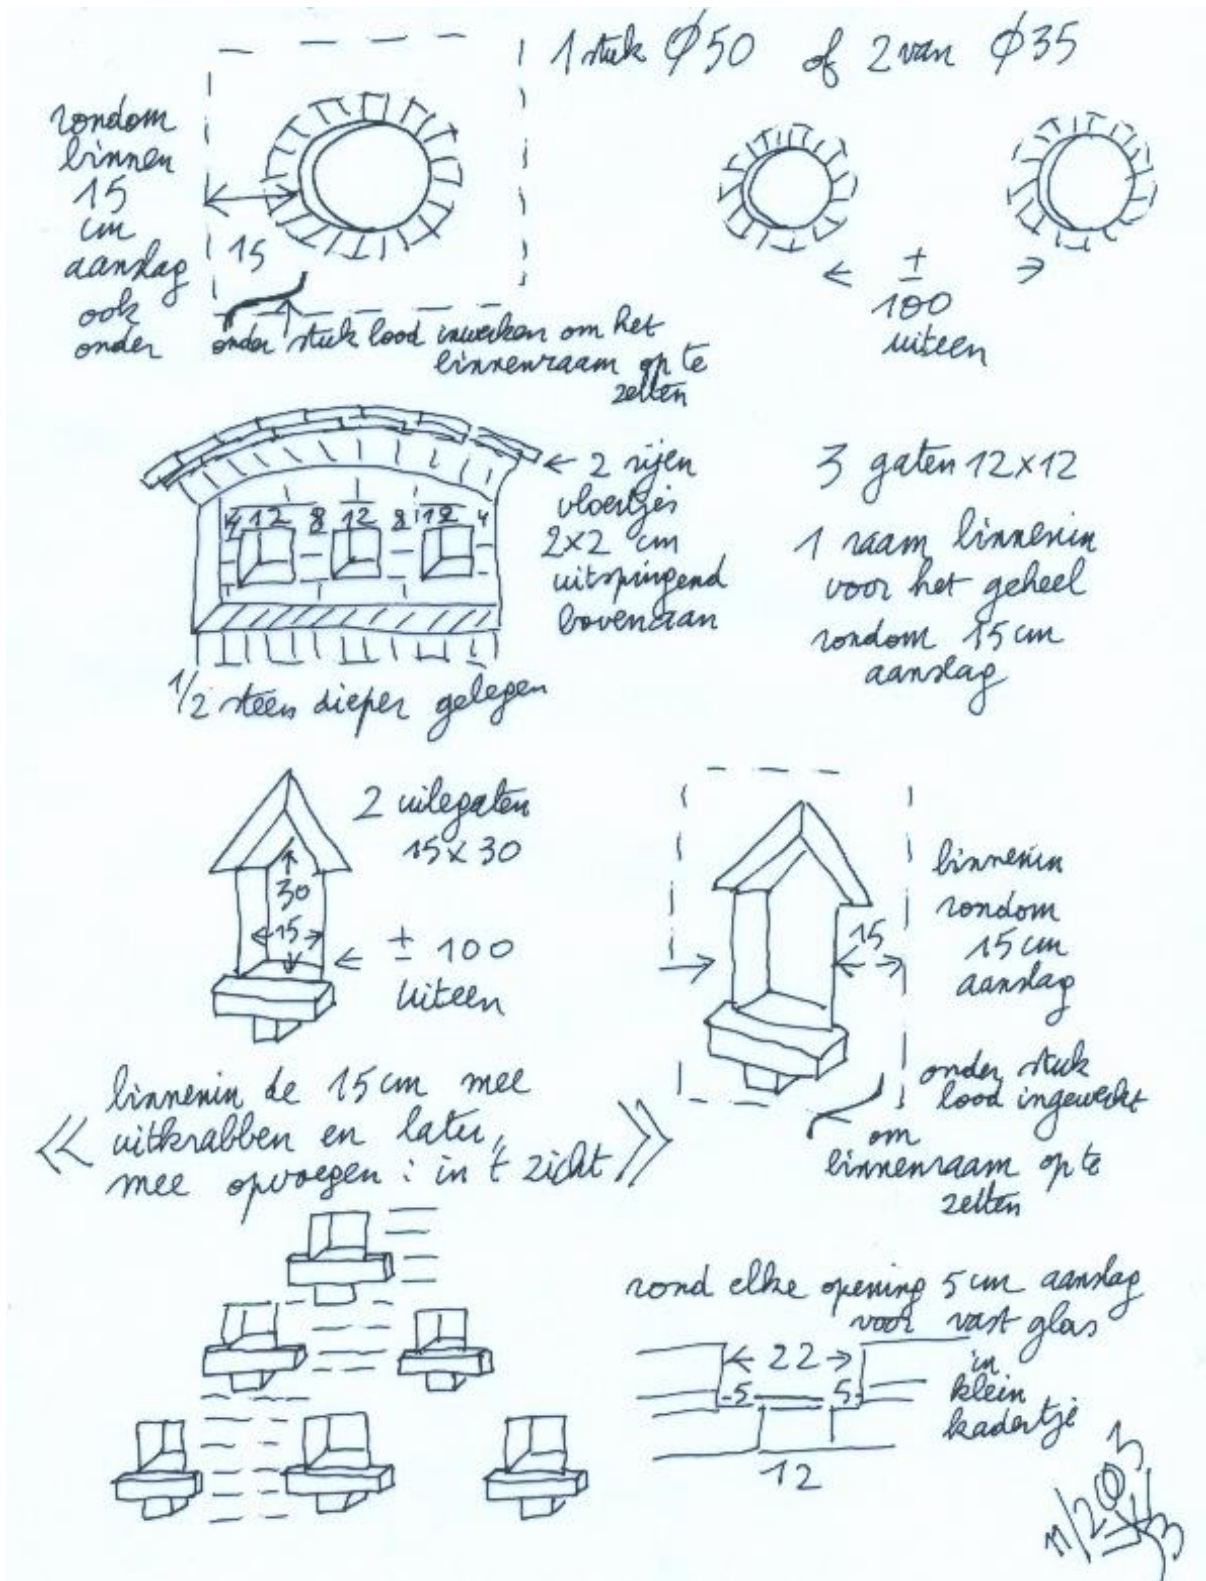 1 stuk Ø50 of 2 van Ø35
rondom
binnen
15
cm
aanslag
ook
onder
15
onder stuk lood inwerken om het
binnenraam op te
zetten
±
100
uiteen
2 rijen
vloertjes
2x2 cm
uitspringend
bovenaan
4 12 8 12 8 12 4
1/2 steen dieper gelegen
3 gaten 12x12
1 raam binnenin
voor het geheel
rondom 15 cm
aanslag
2 uilegaten
15x30
30
15
± 100
uiteen
15
binnenin
rondom
15 cm
aanslag
onder stuk
lood ingewerkt
om
binnenraam op te
zetten
binnenin de 15 cm mee
uitkrabben en later,
mee opvoegen : in 't zicht
rond elke opening 5 cm aanslag
voor vast glas
in
klein
kadertje
22
5 5
12
11/2003